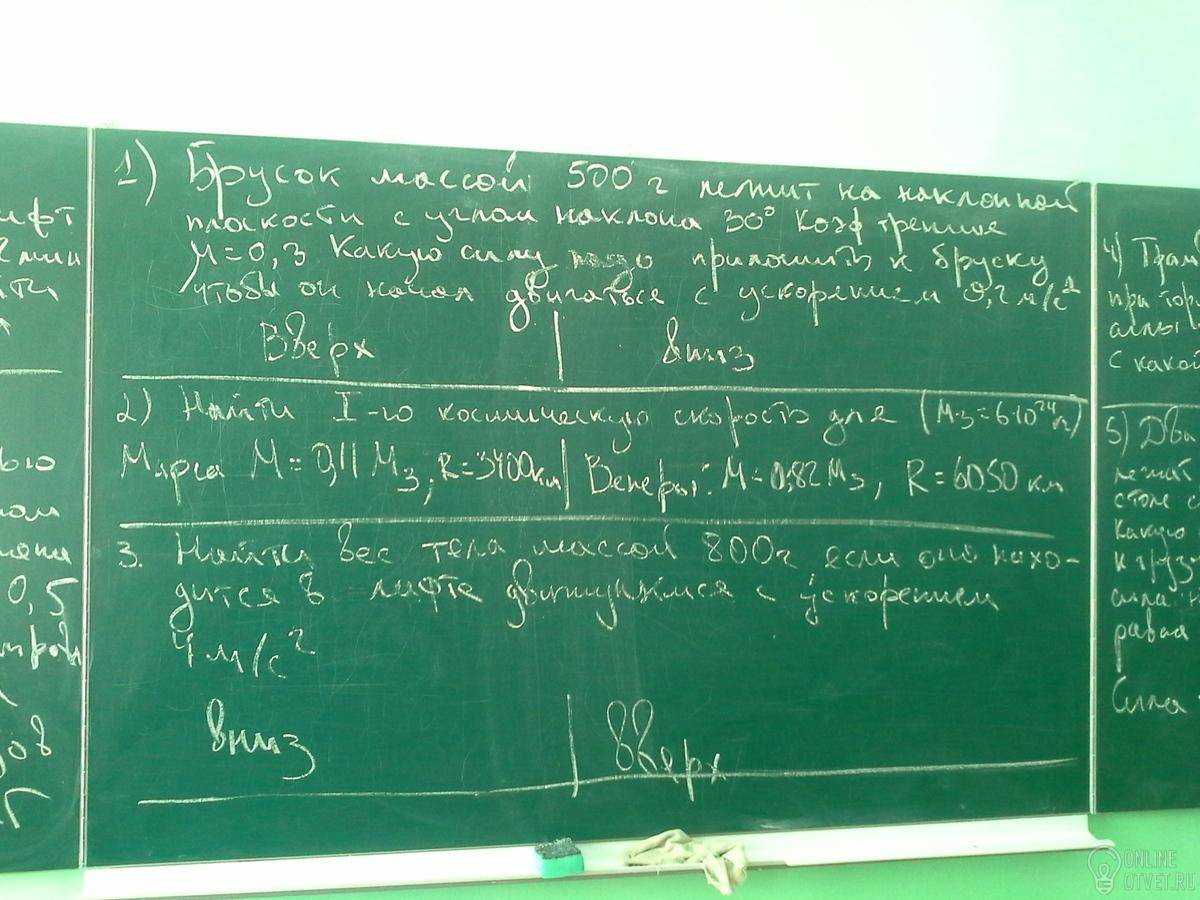 1) Брусок массой 500 г лежит на наклонной
плоскости с углом наклона 30° Коэф трения
μ=0,3 Какую силу надо приложить к бруску
чтобы он начал двигаться с ускорением 0,2 м/с²
Вверх | вниз
2) Найти I-го космическую скорость для (Mз=6·10²⁴кг)
Марса M=0,11 Mз, R=3400км | Венеры: M=0,82Mз, R=6050 км
3. Найти вес тела массой 800г, если оно нахо-
дится в лифте движущимся с ускорением
4 м/с²
вниз | вверх
ифт
0,5
4) Трам
при тор
с какой
5) Два
лежат
столе
какую
к груз
сила
равна
Сила
ONLINE
OTVET.RU